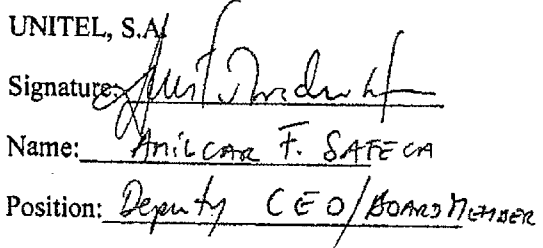 UNITEL, S.A.
Signature:
Name: AMILCAR F. SAFECA
Position: Deputy CEO/BOARD MEMBER